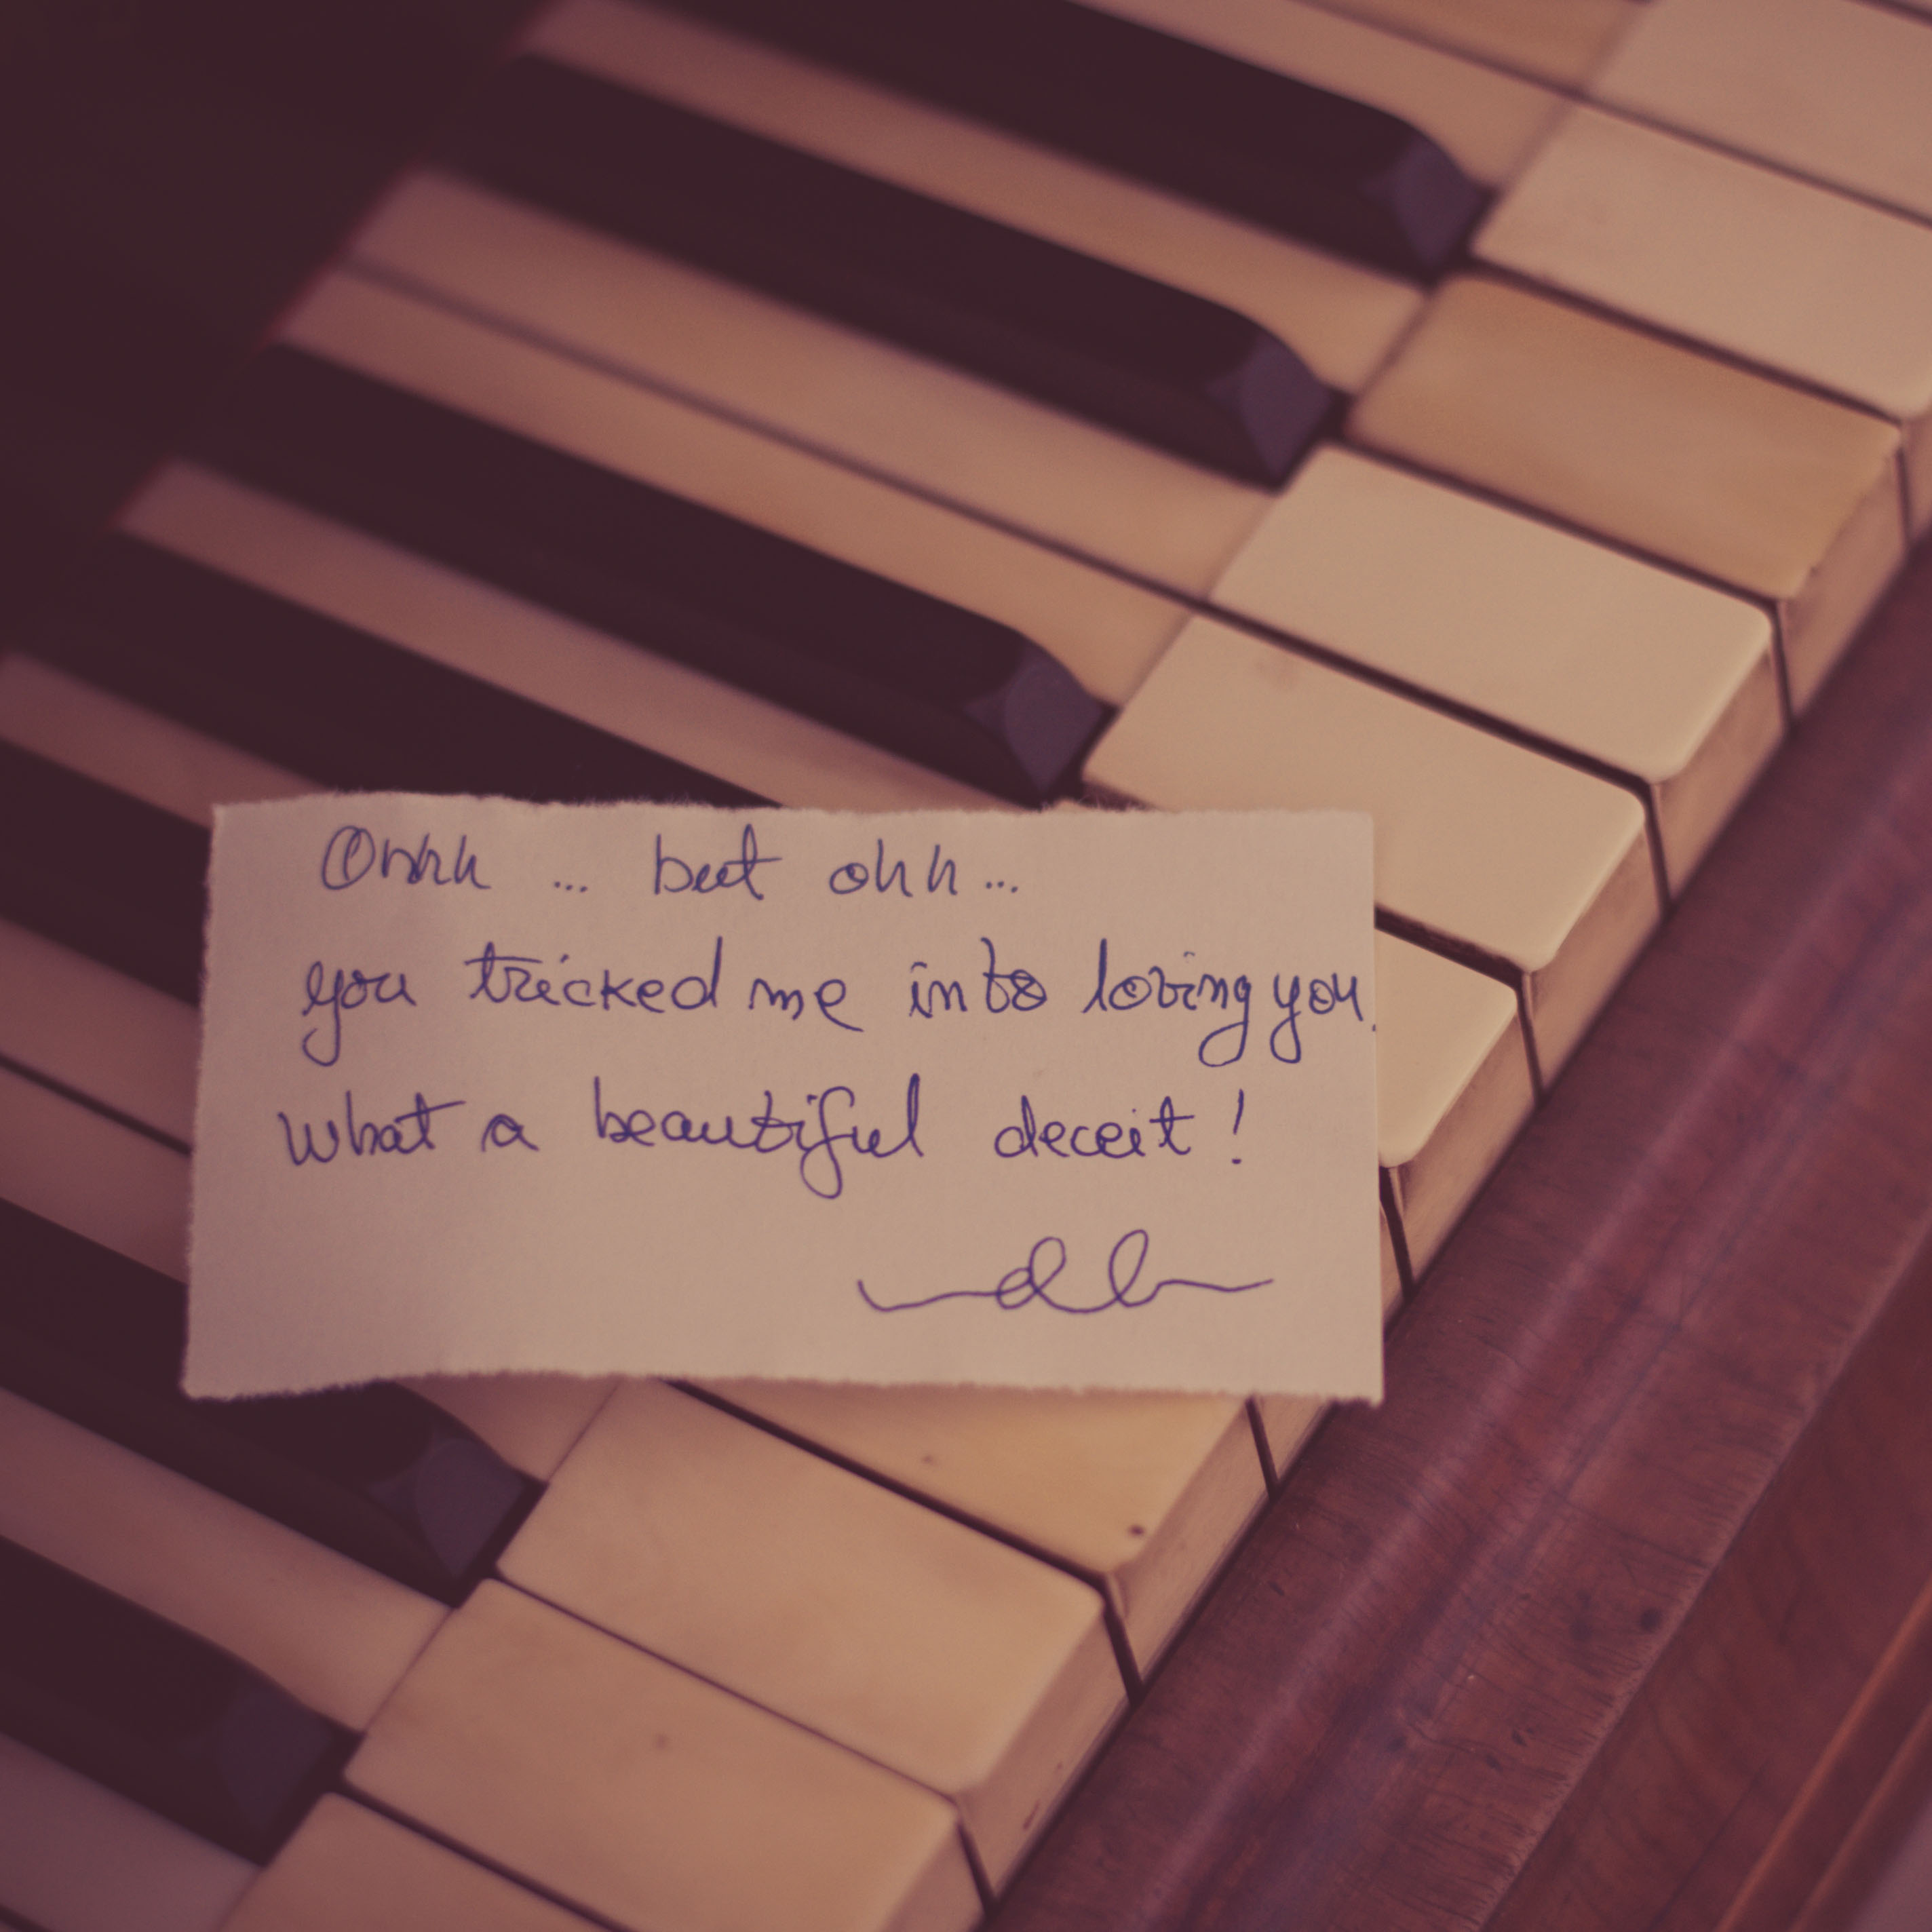 Ohhh ... but ohh...
you tricked me into loving you.
what a beautiful deceit!